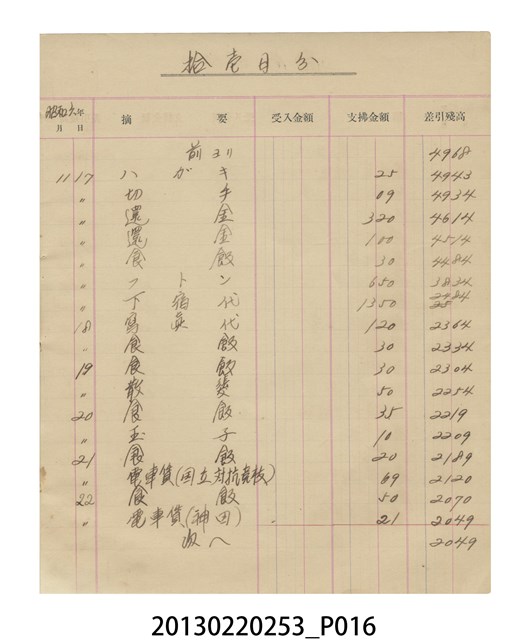 拾壱日分
昭和六年
月 日 摘 要 受入金額 支拂金額 差引残高
前ヨリ 4968
11 17 ハガキ 25 4943
〃 切手 09 4934
〃 還金 320 4614
〃 還金 100 4514
〃 食飯 30 4484
〃 フトン 650 3834
〃 下宿代 1350 2484
18 寫真代 120 2364
〃 食飯 30 2334
19 食飯 30 2304
〃 散髪 50 2254
20 食飯 35 2219
〃 玉子 10 2209
21 食飯 20 2189
〃 電車賃(国立対抗競技) 69 2120
22 食飯 50 2070
〃 電車賃(神田) 21 2049
次へ 2049
20130220253_P016